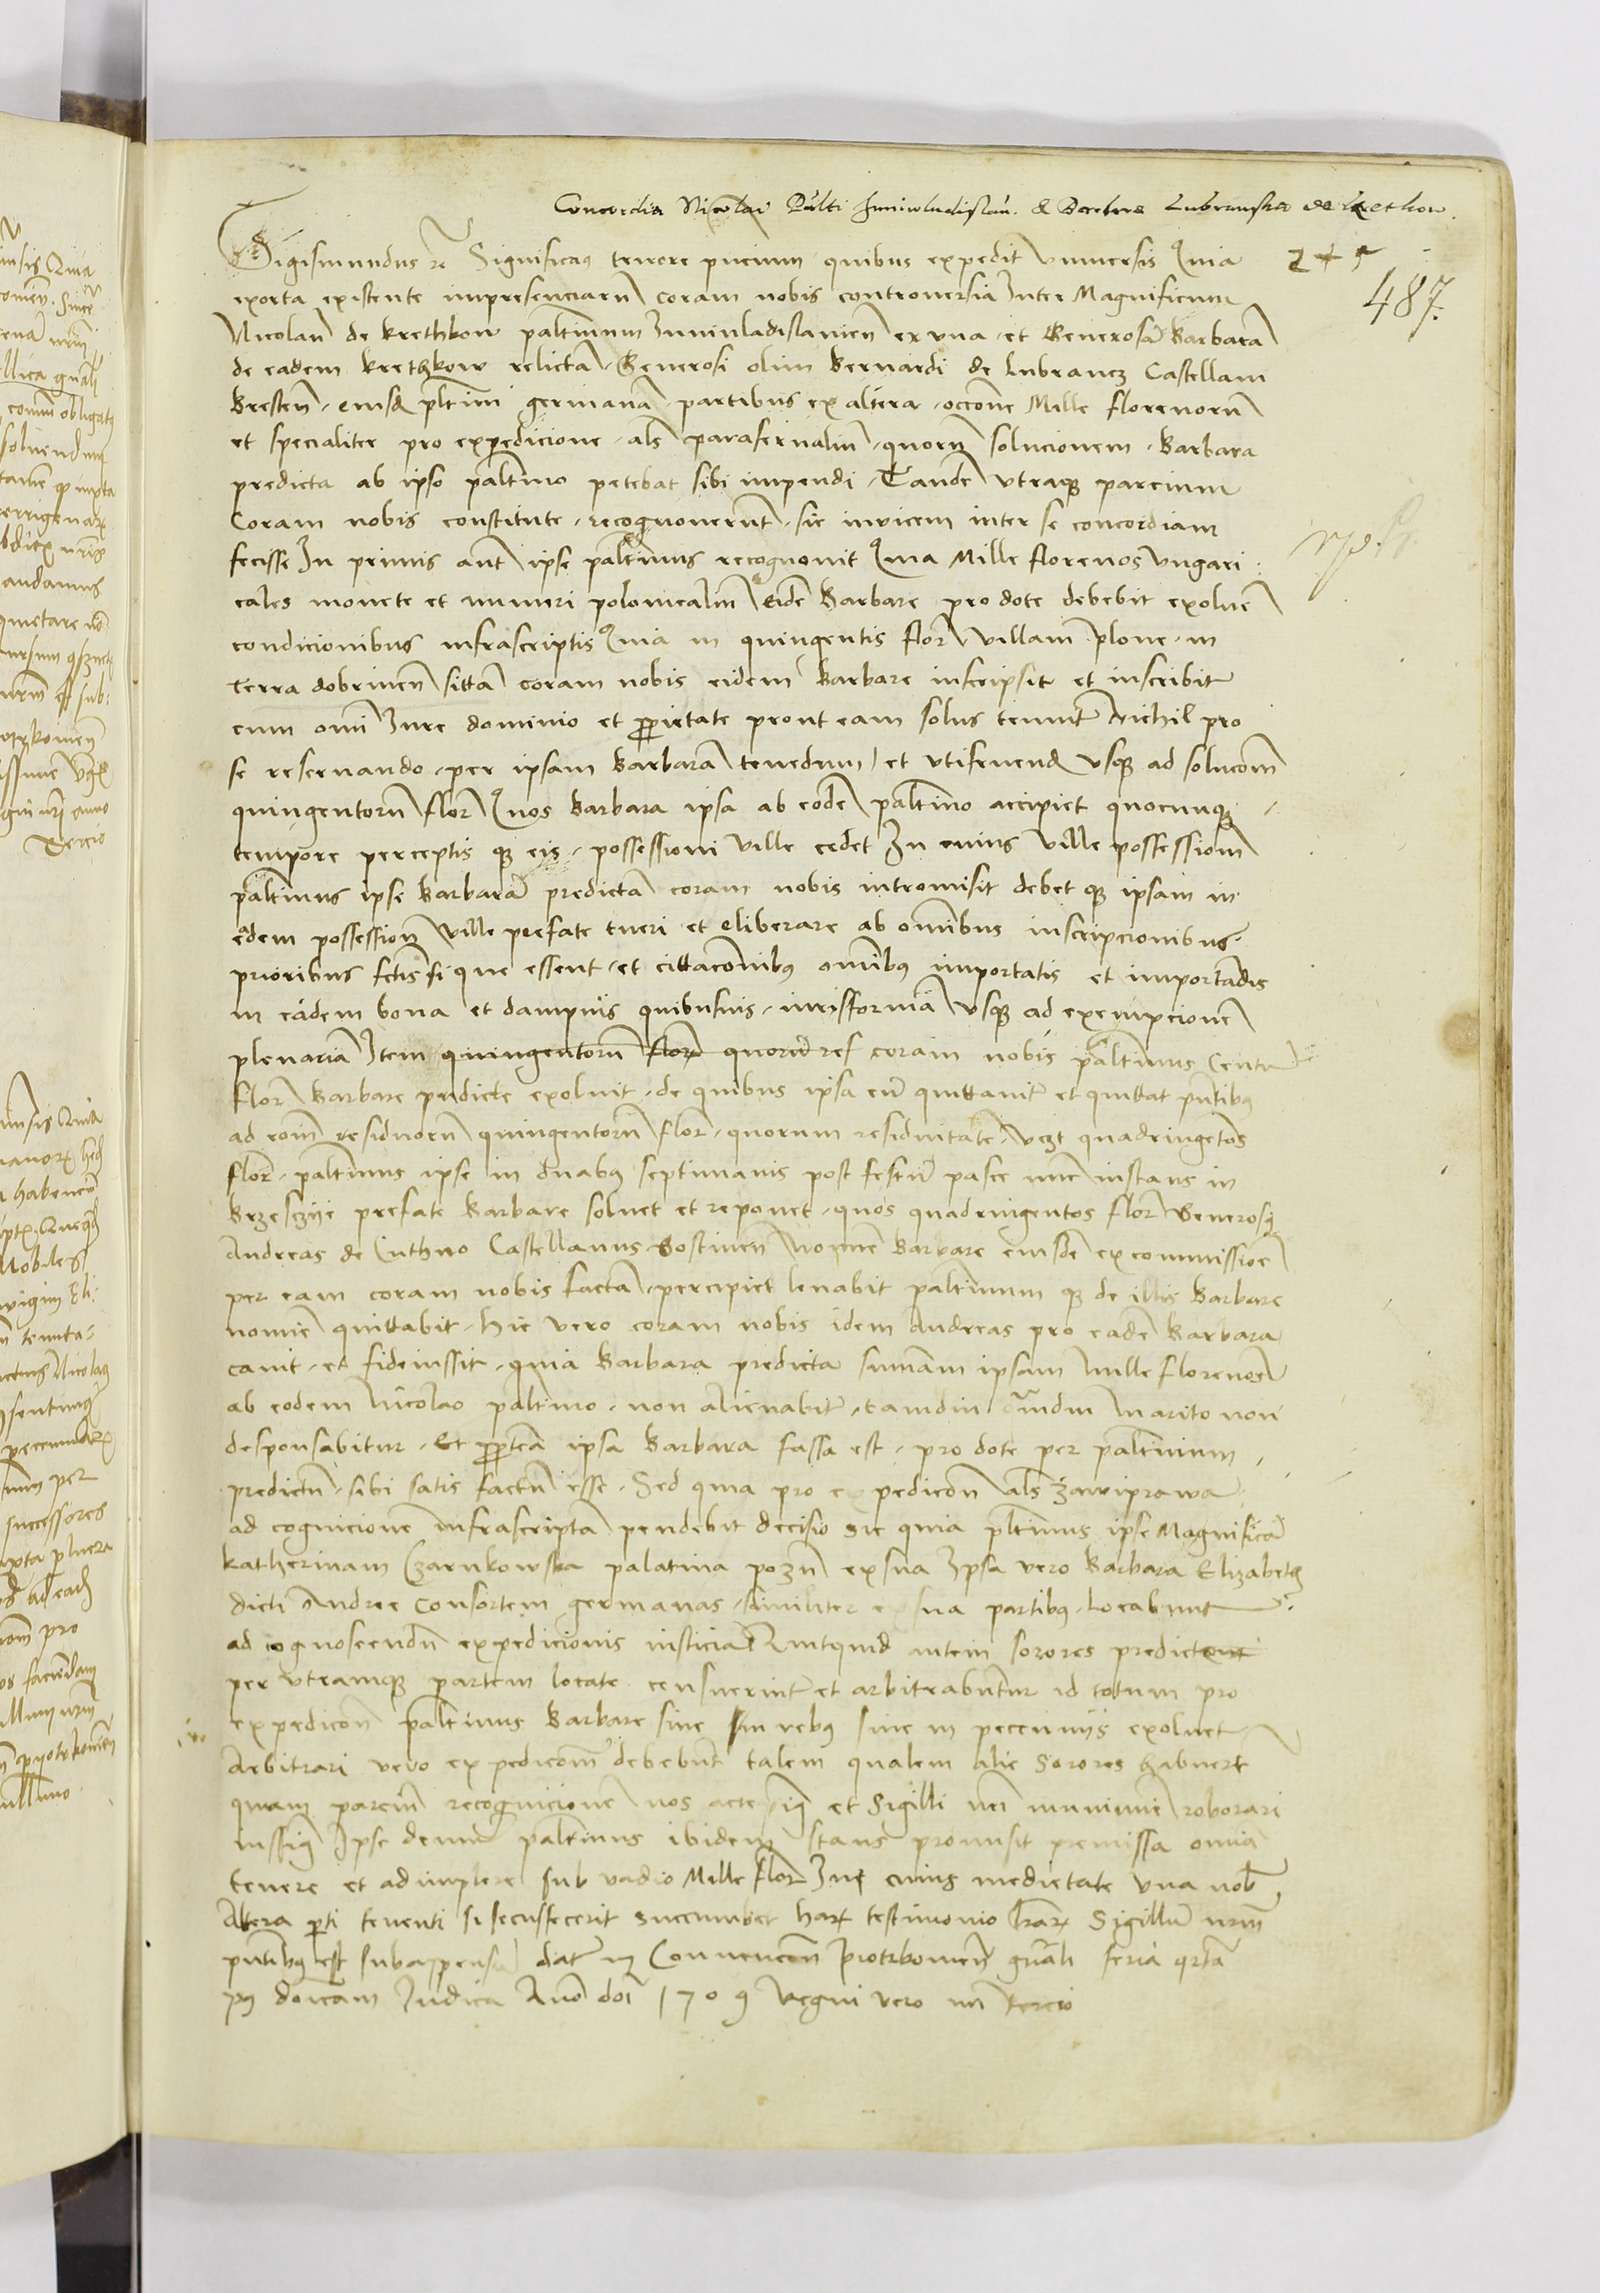 Concordia Nicolai Palti Juniwladislau. & Barbare Lubranska de Krethow.
Sigismundus rc Significam9 tenore pncium quibus expedit vniuersis Quia
245
487.
exorta existente impresenciarũ coram nobis controuersia Inter Magnificum
Nicolaũ de krethkow paltinum Iuniuladislauien ex vna et Generosã Barbarã
de eadem krethkow relictã Generosi olim Bernardi de Lubrancz Castellani
Bresten eiusd pltini germanã partibus ex altera occone Mille florenorũ
et specialiter pro expedicione als parafernaliũ quorũ solucionem Barbara
predicta ab ipso paltino petebat sibi impendi Tandẽ vtraq parcium
Coram nobis constitute recognouerũt sic inuicem inter se concordiam
fecisse In primis aut ipse paltinus recognouit Quia Mille florenos vngari
cales monete et numeri polonicaliũ Eidẽ Barbare pro dote debebit exoluẽ
condicionibus infrascriptis Quia in quingentis flor villam plone in
terra dobrinen sittã coram nobis eidem Barbare inscripsit et inscribit
cum omi Iure dominio et pprietate prout eam solus tenuit Nichil pro
se reseruando per ipsam Barbarã tenedum et vtifruend vsq ad solucom
quingentorũ flor Quos Barbara ipsa ab eodẽ paltino accipiet quocunq
tempore perceptis q eis possessioni ville cedet In cuius ville possessiom
paltinus ipse Barbarã predictã coram nobis intromisit debet q ipsam in
eadem possession ville prefate tueri et eliberare ab omibus inscripcionibus
prioribus fctis si que essent et cittaconib9 omib9 importatis et importãdis
in eadem bona et dampnis quibusuis iurisformã vsq ad exempcionẽ
plenariã Item quingentorũ flor coram nobis paltinus Centũ
flor Barbare predicte exoluit de quibus ipsa eũ quittauit et quittat pntib9
ad roim residuorũ quingentorũ flor quorum residuitatẽ vczt quadringetos
flor paltinus ipse in duab9 septimanis post festũ pasce nũc instans in
Brzesczye prefate Barbare soluet et reponet quos quadringentos flor Generos9
Andreas de Cuthno Castellanus Gostinen nomine Barbare eiusdẽ ex commissioe
per eam coram nobis factã percipiet leuabit paltinum q de illis Barbare
nomie quittabit hic vero coram nobis idem Andreas pro eadẽ Barbara
cauit et fideiussit quia Barbara predicta sumam ipsam mille florenos
ab eodem Nicolao paltino non alienabit tamdiu quãdiu marito non
desponsabitur Et ppterea ipsa Barbara fassa est pro dote per paltinum
predictũ sibi satis factũ esse Sed quia pro expedicon als zawiprawa
ad cognicionẽ infrascriptã pendebit decisio sic quia pltinus ipse Magnificã
katherinam Czarnkowska palatina pozn ex sua Ipsa vero Barbara Elizabeth
dicti Andree Consortem germanas similiter ex sua partib9 locabunt
ad cognoscendũ expedicionis iusticiã Quitquid autem sorores predicte
per vtramq partem locate censuerint et arbitrabuntur id totum pro
expedicon paltinus Barbare siue in reb9 siue in pecunijs exoluet
Arbitrari vero expedicom debebũt talem qualem alie Sorores habuert
quam parciũ recognicionẽ nos et Sigilli nri munimẽ roborari
iussim9 Ipse demũ paltinus ibidem stans promisit premissa omia
tenere et adimplere sub vadio Mille flor cuius medietate vna nob
Altera pti tenenti si secusfecerit succumbet har testimonio lrar Sigillũ nrm
pntib9 est subappensũ dat in Conuencon piotrkouien gnali feria qrta
p9 doicam Iudica Anno doi 1509 Regni vero nri tercio